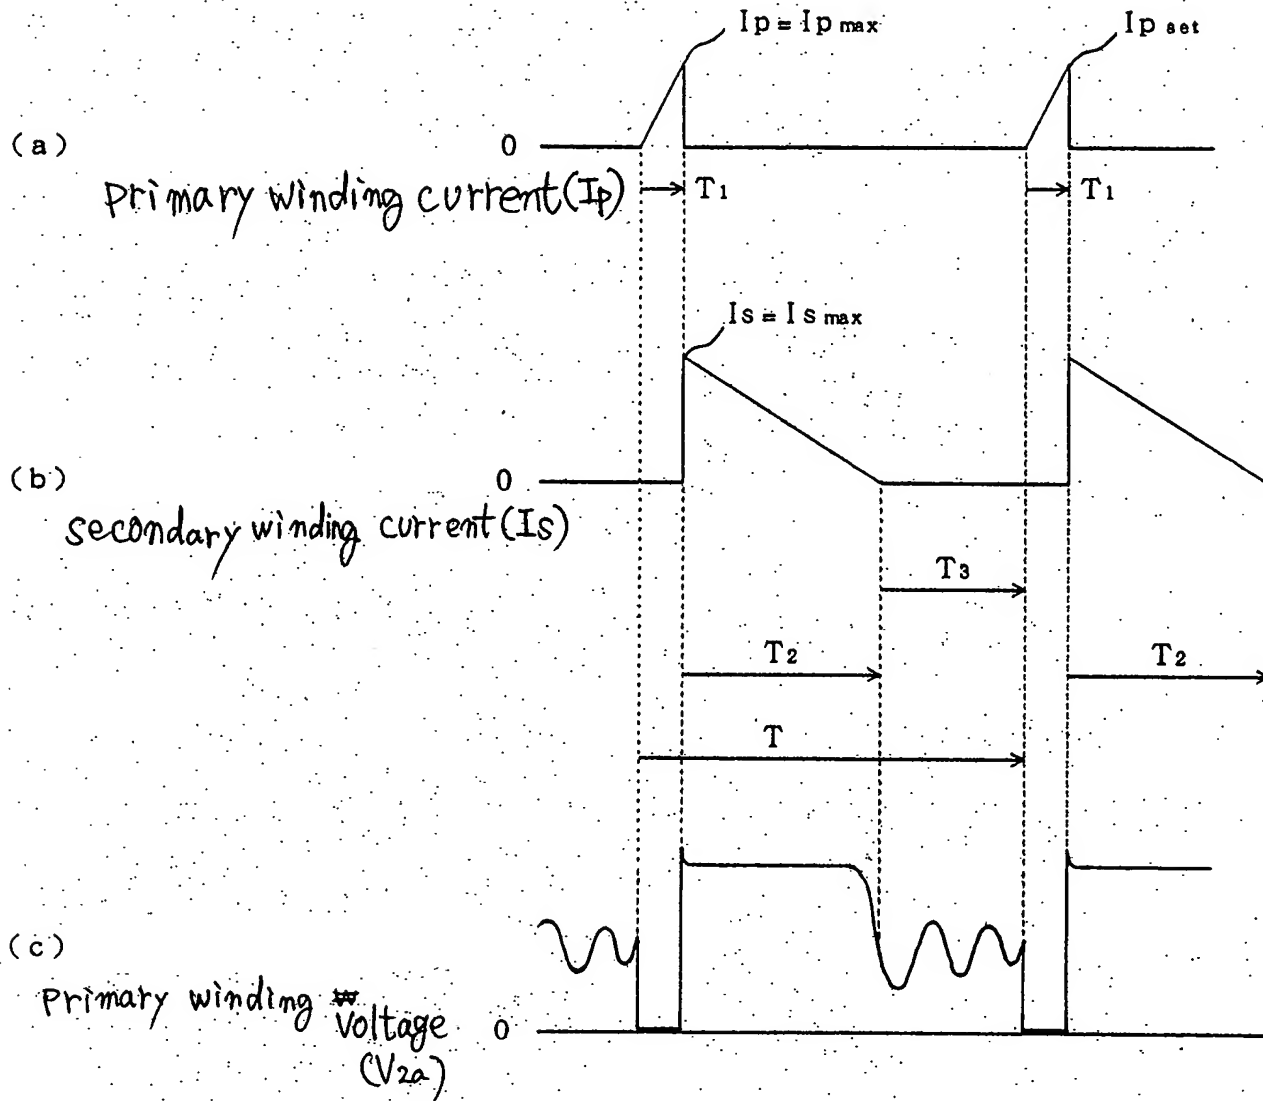 Ip = Ip max
Ip set
(a)
0
T1
T1
Primary winding current (Ip)
Is = Is max
(b)
0
secondary winding current (Is)
T3
T2
T2
T
(c)
Primary winding
Voltage
0
(V2a)